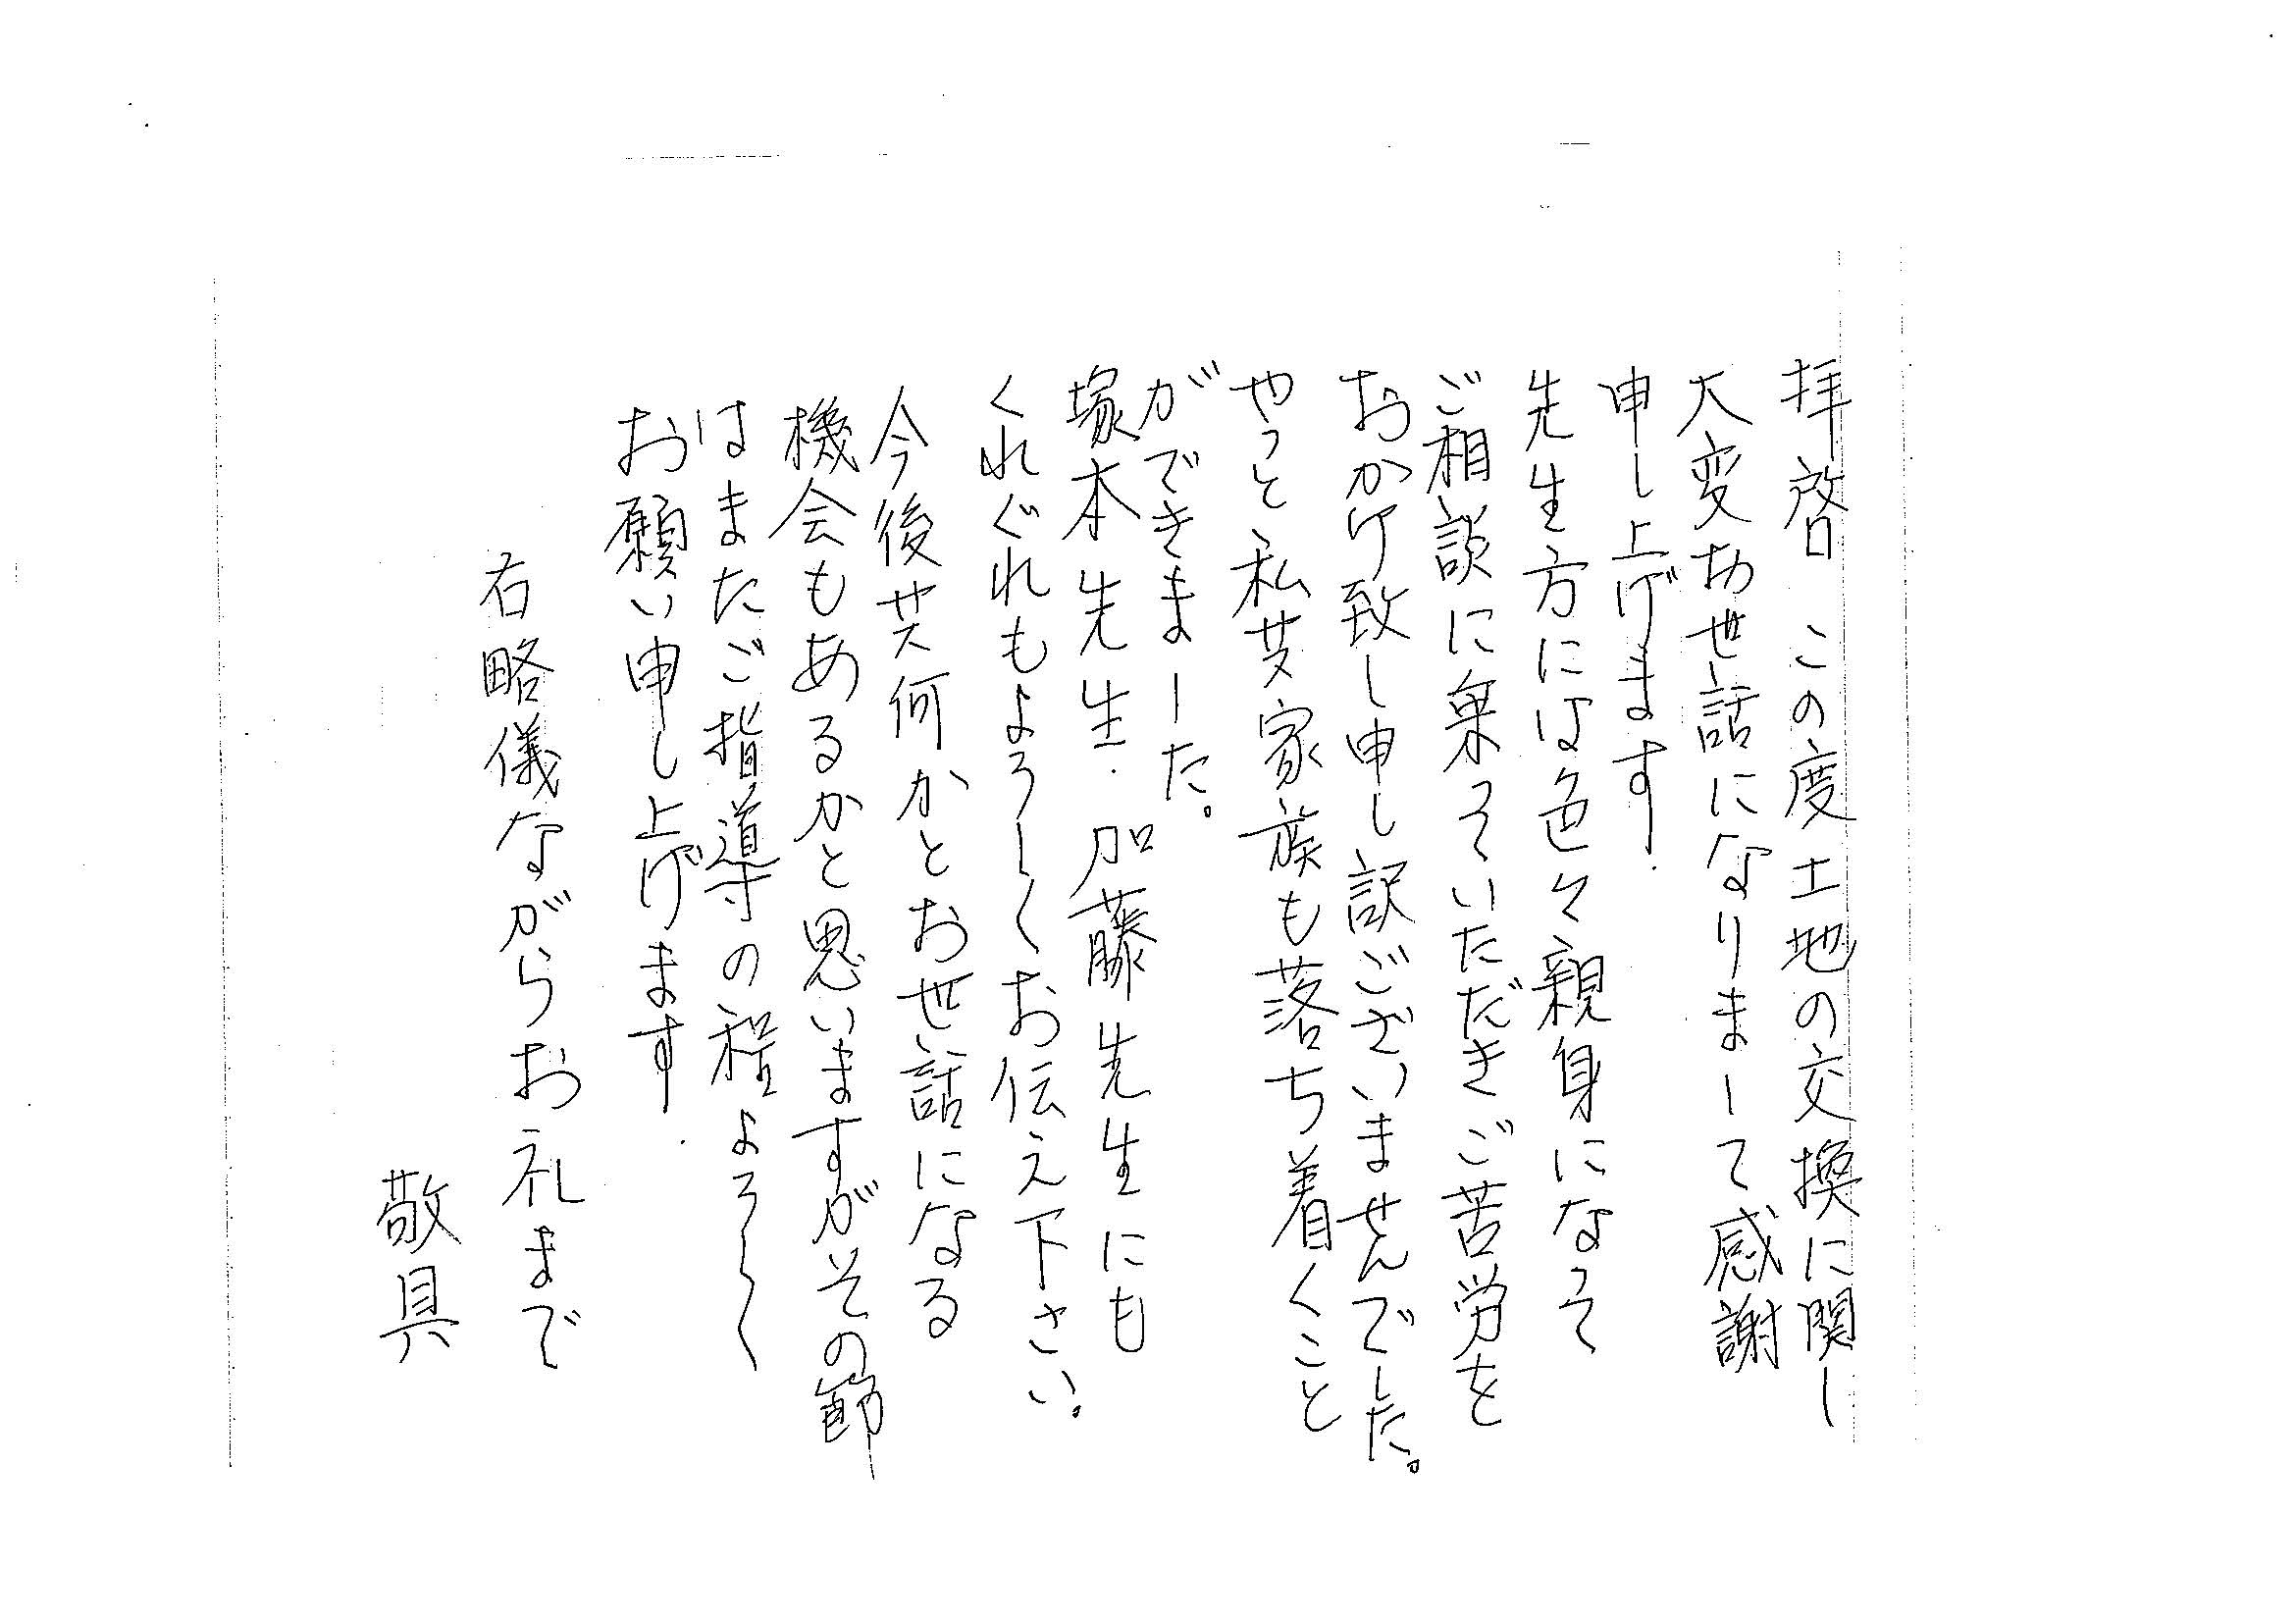 拝啓 この度土地の交換に関し
大変お世話になりまして感謝
申し上げます.
先生方には色々親身になって
ご相談に乗っていただきご苦労を
おかけ致し申し訳ございませんでした。
やっと私共家族も落ち着くこと
ができました。
塚本先生.加藤先生にも
くれぐれもよろしくお伝え下さい。
今後共何かとお世話になる
機会もあるかと思いますがその節
はまたご指導の程よろしく
お願い申し上げます.
右略儀ながらお礼まで
敬具